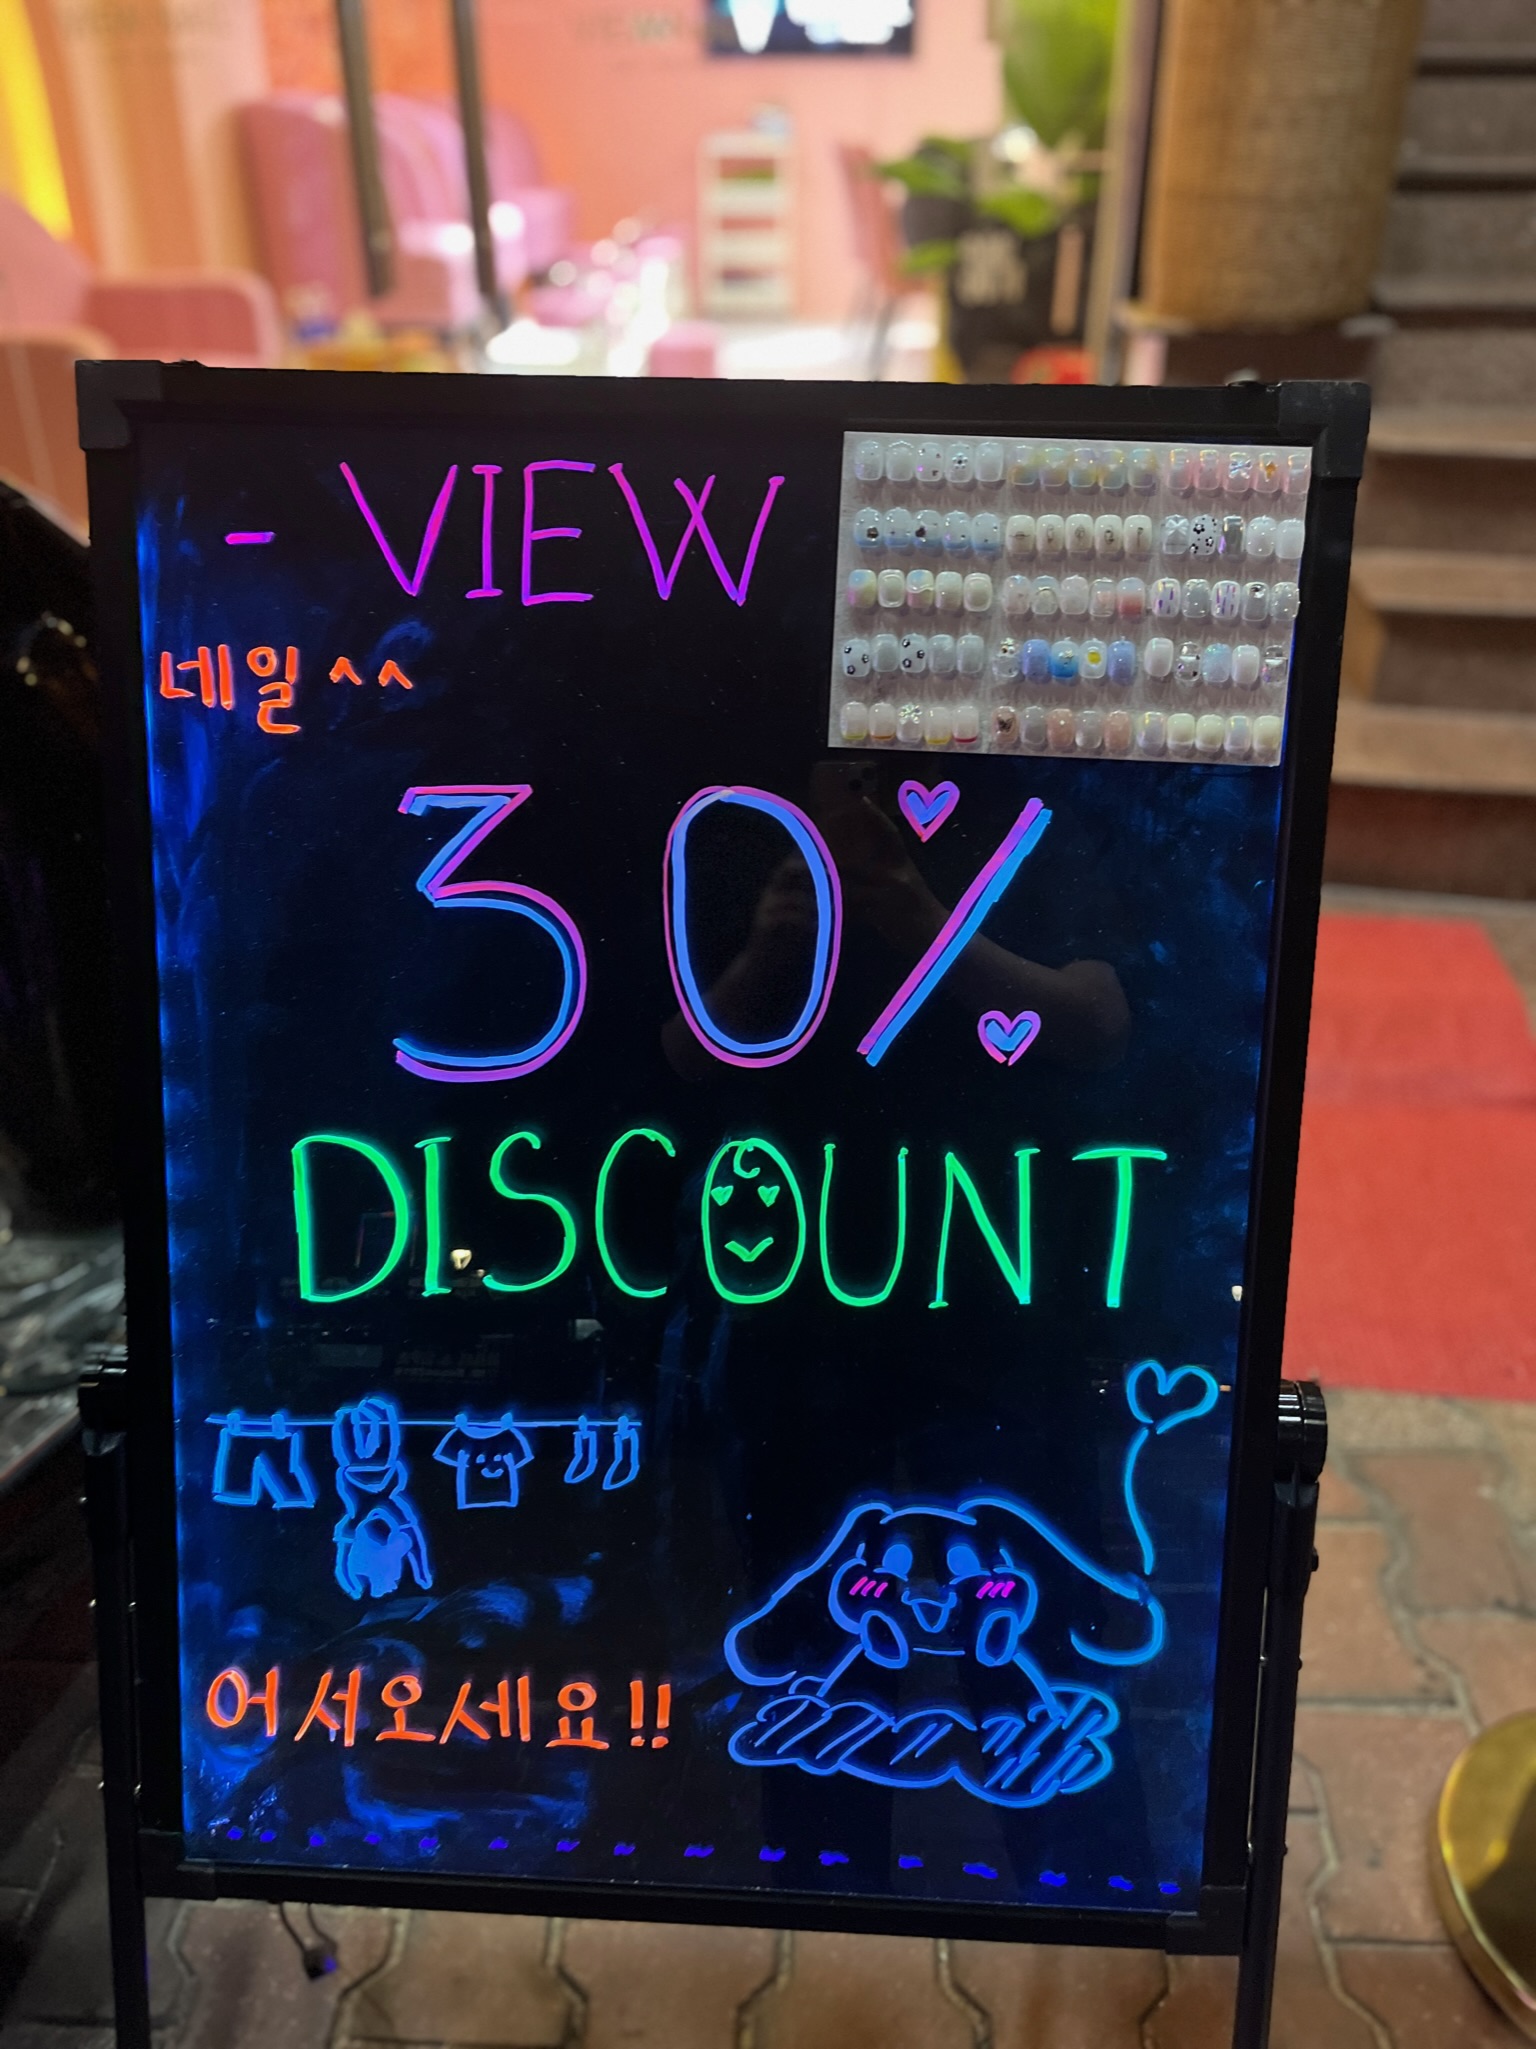 - VIEW
네일 ^^
30%
DISCOUNT
어서오세요!!